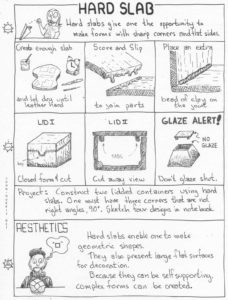 HARD SLAB
Hard slabs give one the opportunity to
make forms with sharp corners and flat sides.
Create enough slab
and let dry until
leather hard
Score and Slip
to join parts
Place an extra
bead of clay on
the joint
LID I
Closed form & cut
LID I
Cut away view
GLAZE ALERT!
NO
GLAZE
Don't glaze shut.
Project: Construct two lidded containers using hard
slabs. One must have three corners that are not
right angles, 90°. Sketch four designs in notebook.
AESTHETICS
Hard slabs enable one to make
geometric shapes.
They also present large flat surfaces
for decoration.
Because they can be self supporting
complex forms can be created.